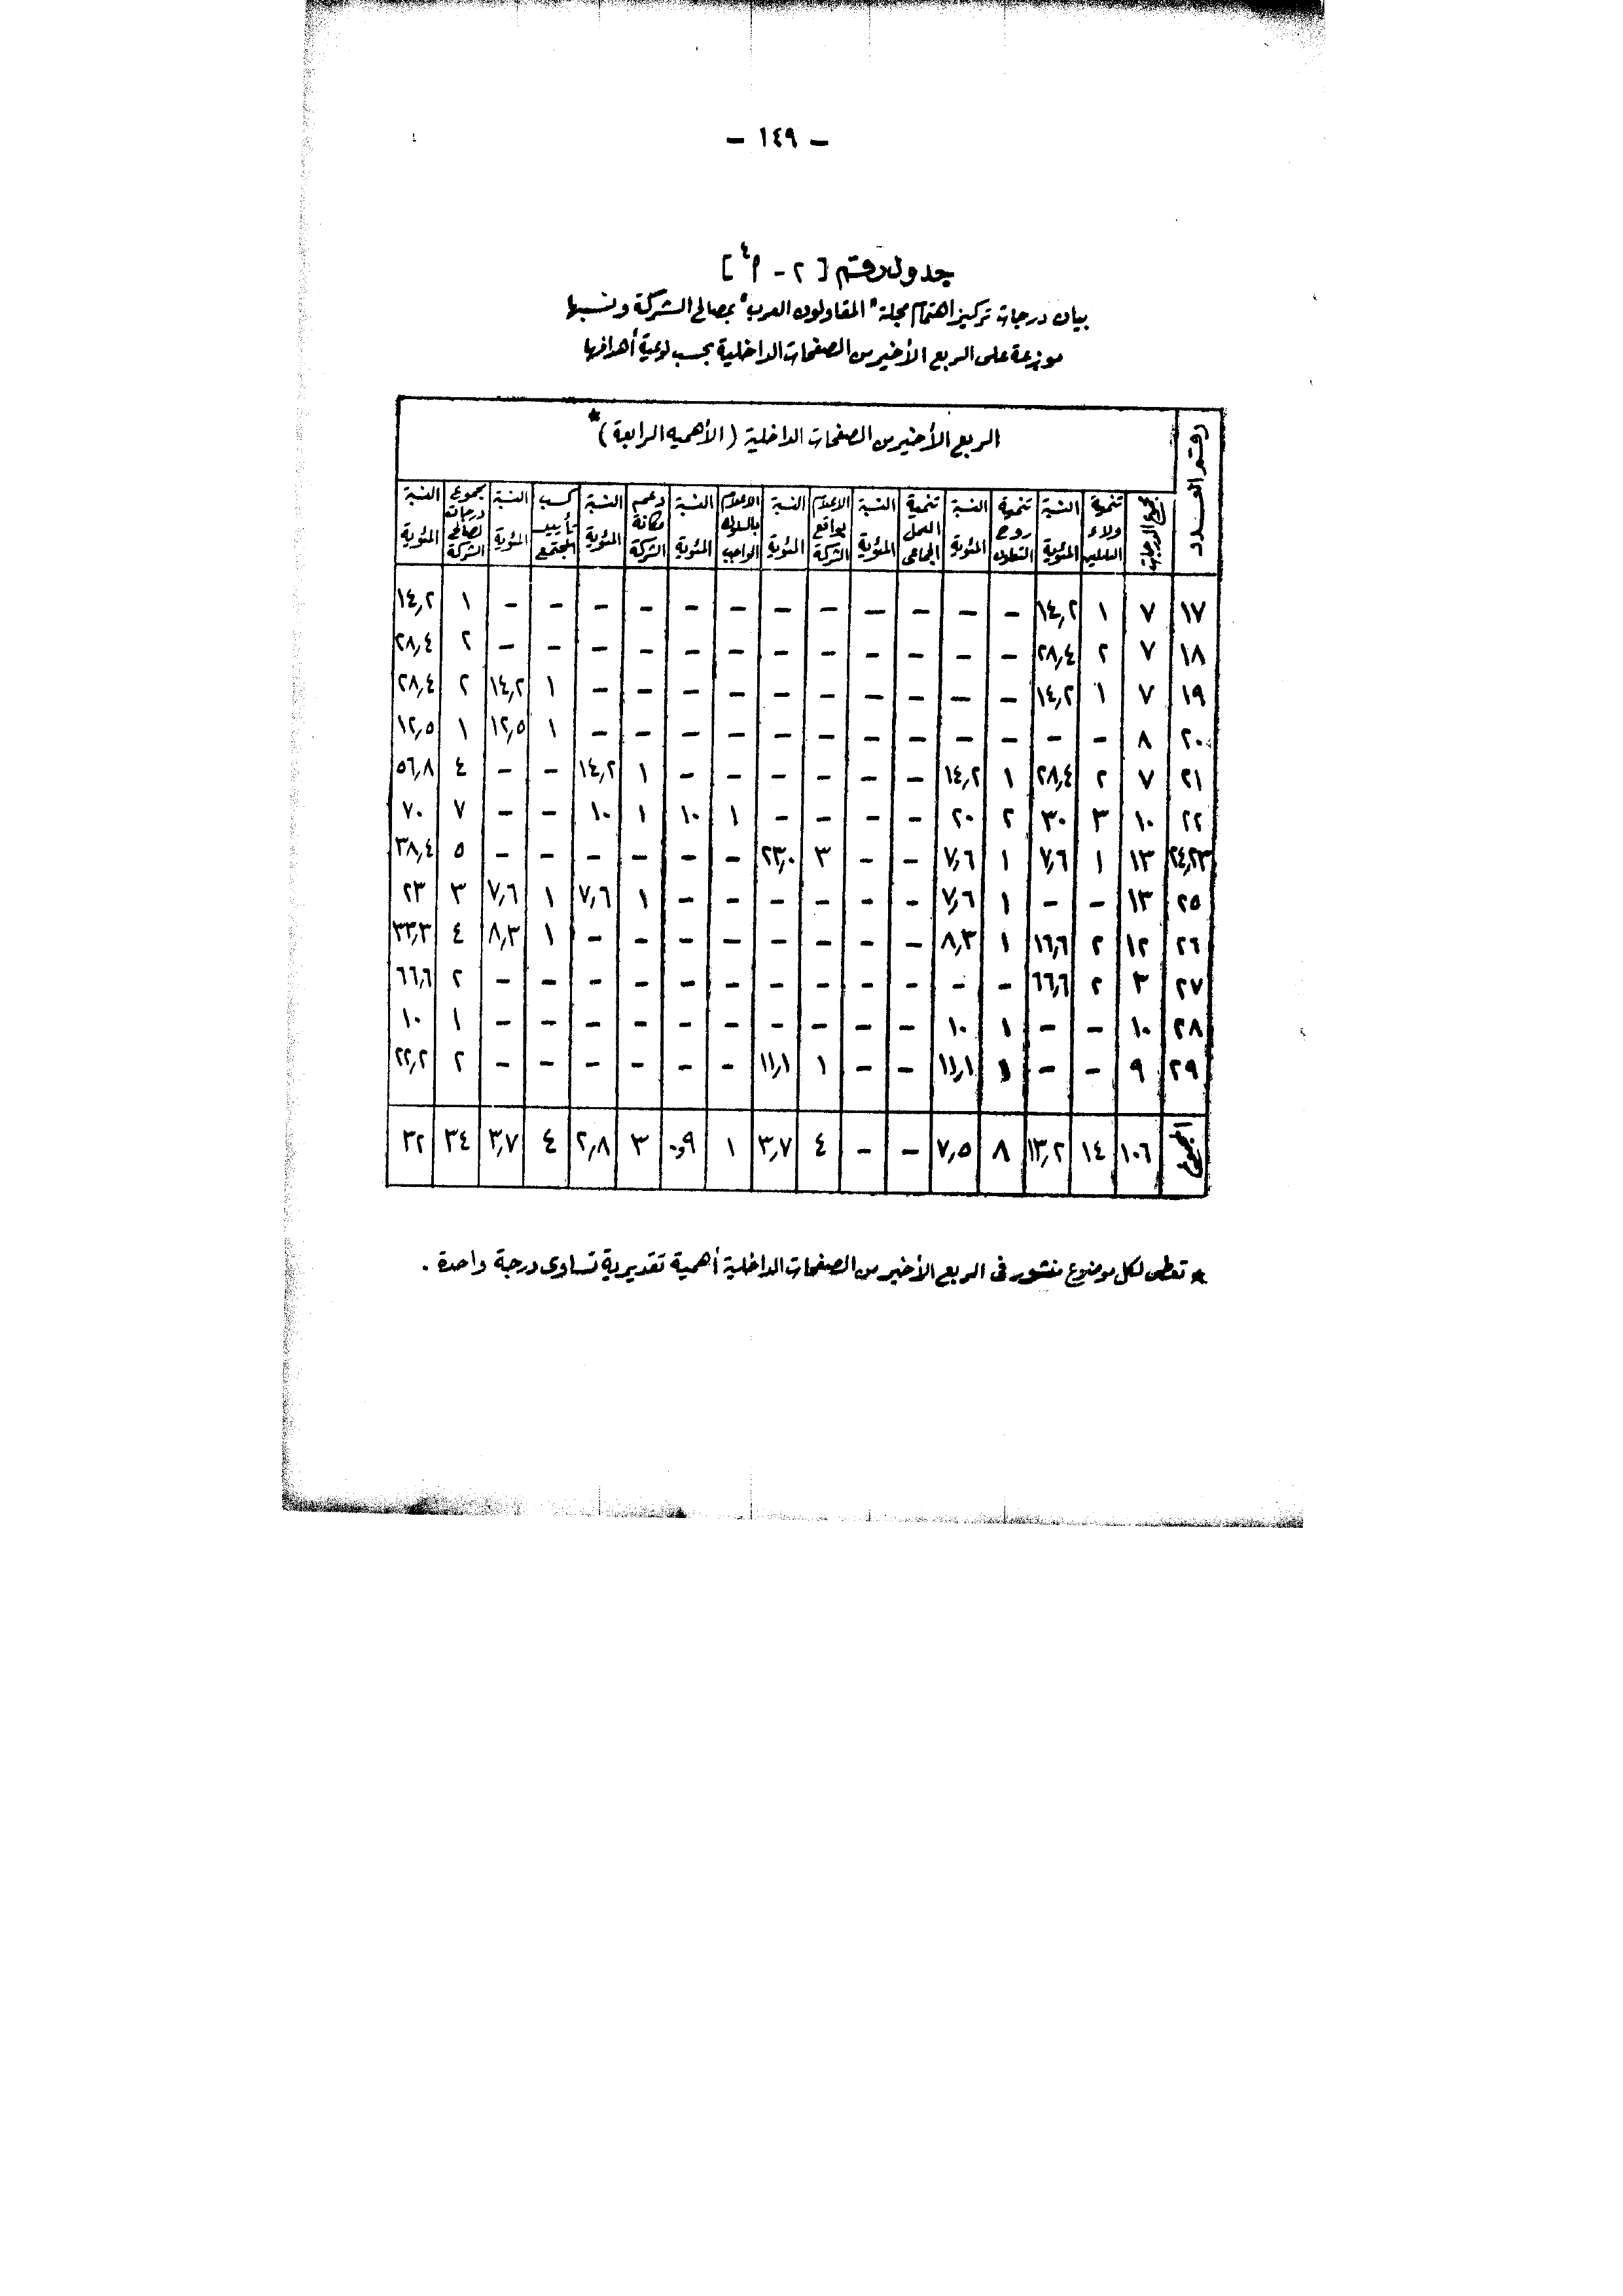 – ١٤٩ –
جدول رقم [ ٢ - أ٤ ]
بيان درجات تركيز اهتمام مجلة "المقاولون العرب" بمصالح الشركة ونسبها
موزعة على الربع الأخير من الصفحات الداخلية بحسب نوعية أهدافها
رقم العدد | الربع الأخير من الصفحات الداخلية (الأهمية الرابعة) *
مجموع الدرجات | تنمية ولاء العاملين | النسبة المئوية | تنمية روح التعاون | النسبة المئوية | تنمية العمل الجماعى | النسبة المئوية | الاعلام بواقع الشركة | النسبة المئوية | الاعلام بالسلوك الواجب | النسبة المئوية | دعم مكانة الشركة | النسبة المئوية | كسب تأييد المجتمع | النسبة المئوية | مجموع درجات لصالح الشركة | النسبة المئوية
١٧ | ٧ | ١ | ١٤,٢ | – | – | – | – | – | – | – | – | – | – | – | – | ١ | ١٤,٢
١٨ | ٧ | ٢ | ٢٨,٤ | – | – | – | – | – | – | – | – | – | – | – | – | ٢ | ٢٨,٤
١٩ | ٧ | ١ | ١٤,٢ | – | – | – | – | – | – | – | – | – | – | ١ | ١٤,٢ | ٢ | ٢٨,٤
٢٠ | ٨ | – | – | – | – | – | – | – | – | – | – | – | – | ١ | ١٢,٥ | ١ | ١٢,٥
٢١ | ٧ | ٢ | ٢٨,٤ | ١ | ١٤,٢ | – | – | – | – | – | – | ١ | ١٤,٢ | – | – | ٤ | ٥٦,٨
٢٢ | ١٠ | ٣ | ٣٠ | ٢ | ٢٠ | – | – | – | – | ١ | ١٠ | ١ | ١٠ | – | – | ٧ | ٧٠
٢٤,٢٣ | ١٣ | ١ | ٧,٦ | ١ | ٧,٦ | – | – | ٣ | ٢٣,٠ | – | – | – | – | – | – | ٥ | ٣٨,٤
٢٥ | ١٣ | – | – | ١ | ٧,٦ | – | – | – | – | – | – | ١ | ٧,٦ | ١ | ٧,٦ | ٣ | ٢٣
٢٦ | ١٢ | ٢ | ١٦,٦ | ١ | ٨,٣ | – | – | – | – | – | – | – | – | ١ | ٨,٣ | ٤ | ٣٣,٣
٢٧ | ٣ | ٢ | ٦٦,٦ | – | – | – | – | – | – | – | – | – | – | – | – | ٢ | ٦٦,٦
٢٨ | ١٠ | – | – | ١ | ١٠ | – | – | – | – | – | – | – | – | – | – | ١ | ١٠
٢٩ | ٩ | – | – | ١ | ١١,١ | – | – | ١ | ١١,١ | – | – | – | – | – | – | ٢ | ٢٢,٢
المجموع | ١٠٦ | ١٤ | ١٣,٢ | ٨ | ٧,٥ | – | – | ٤ | ٣,٧ | ١ | ٠,٩ | ٣ | ٢,٨ | ٤ | ٣,٧ | ٣٤ | ٣٢
* تعطى لكل موضوع منشور فى الربع الأخير من الصفحات الداخلية أهمية تقديرية تساوى درجة واحدة .